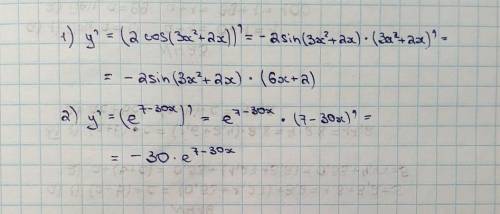 1) y' = (2 cos(3x²+2x))' = -2sin(3x²+2x) · (3x²+2x)' =
= -2sin(3x²+2x) · (6x+2)
2) y' = (e^{7-30x})' = e^{7-30x} · (7-30x)' =
= -30 · e^{7-30x}